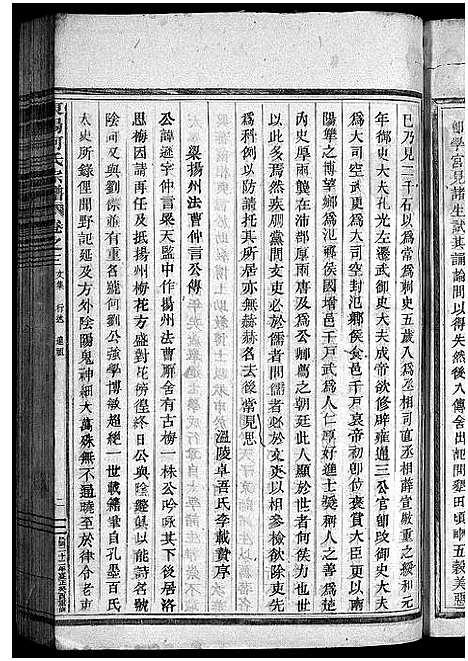 即學宮見諸生試其誦論問以得失然後入傳舍出記問墾田頃畝五穀美惡
已乃見二千石以爲常爲刺史五歲八爲丞相司直丞相薛宣敬重之綏和元
年御史大夫孔光左遷武御史大夫成帝欲修辟雍通三公官卽改御史大夫
爲大司空武更爲大司空封氾鄉侯食邑千戶哀帝初褒賞大臣更以南
陽犨之博望鄉爲氾鄉侯國增邑千戶武爲人仁厚好進士獎稱人之善爲楚
內史厚兩龔在沛郡厚兩唐及爲公卿薦之朝廷此人顯於世者何侯力也世
以此多焉然疾朋黨問文吏必於儒者問儒者必於文吏以相參檢欲除吏先
爲科例以防請托其所居亦無赫赫名去後常見思
溫陵卓吾氏李載贄序
梁揚州法曹仲言公傳
公諱遜字仲言梁天監中作揚州法曹廨舍有古梅一株公吟咏其下後居洛
思梅因請再任及抵揚州梅花方盛對花徬徨終日公與陰鏗俱以能詩名號
陰何又與劉孝綽並有重名號何劉公強學博敏超絕一世載籍肇自孔墨百氏
太史所錄俚閭野記延及方外陰陽鬼神細大萬殊無不通曉至於律令老吏
何氏宗譜 卷之二 文集 行述 遠祖
二